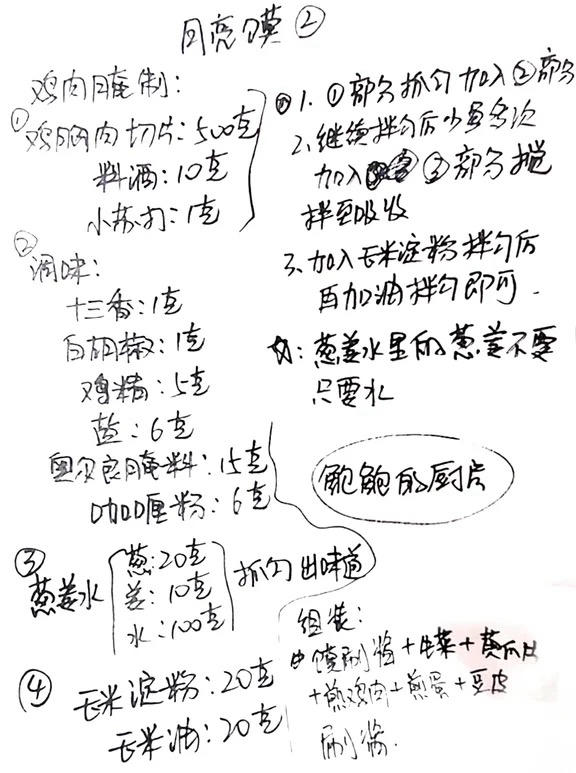 月亮馍②
鸡肉腌制：
①鸡胸肉切片：500克
料酒：10克
小苏打：1克
②调味：
十三香：1克
白胡椒：1克
鸡精：5克
盐：6克
奥尔良腌料：15克
咖喱粉：6克
③葱姜水
葱：20克
姜：10克
水：100克
抓匀出味道
④玉米淀粉：20克
玉米油：20克
1.①部分抓匀加入②部分
2.继续拌匀后少量多次
加入③部分搅
拌至吸收
3.加入玉米淀粉拌匀后
再加油拌匀即可.
葱姜水里的葱姜不要
只要水
鲍鲍的厨片
组装：
馍刷酱+生菜+黄瓜片
+煎鸡肉+煎蛋+豆皮
刷酱.